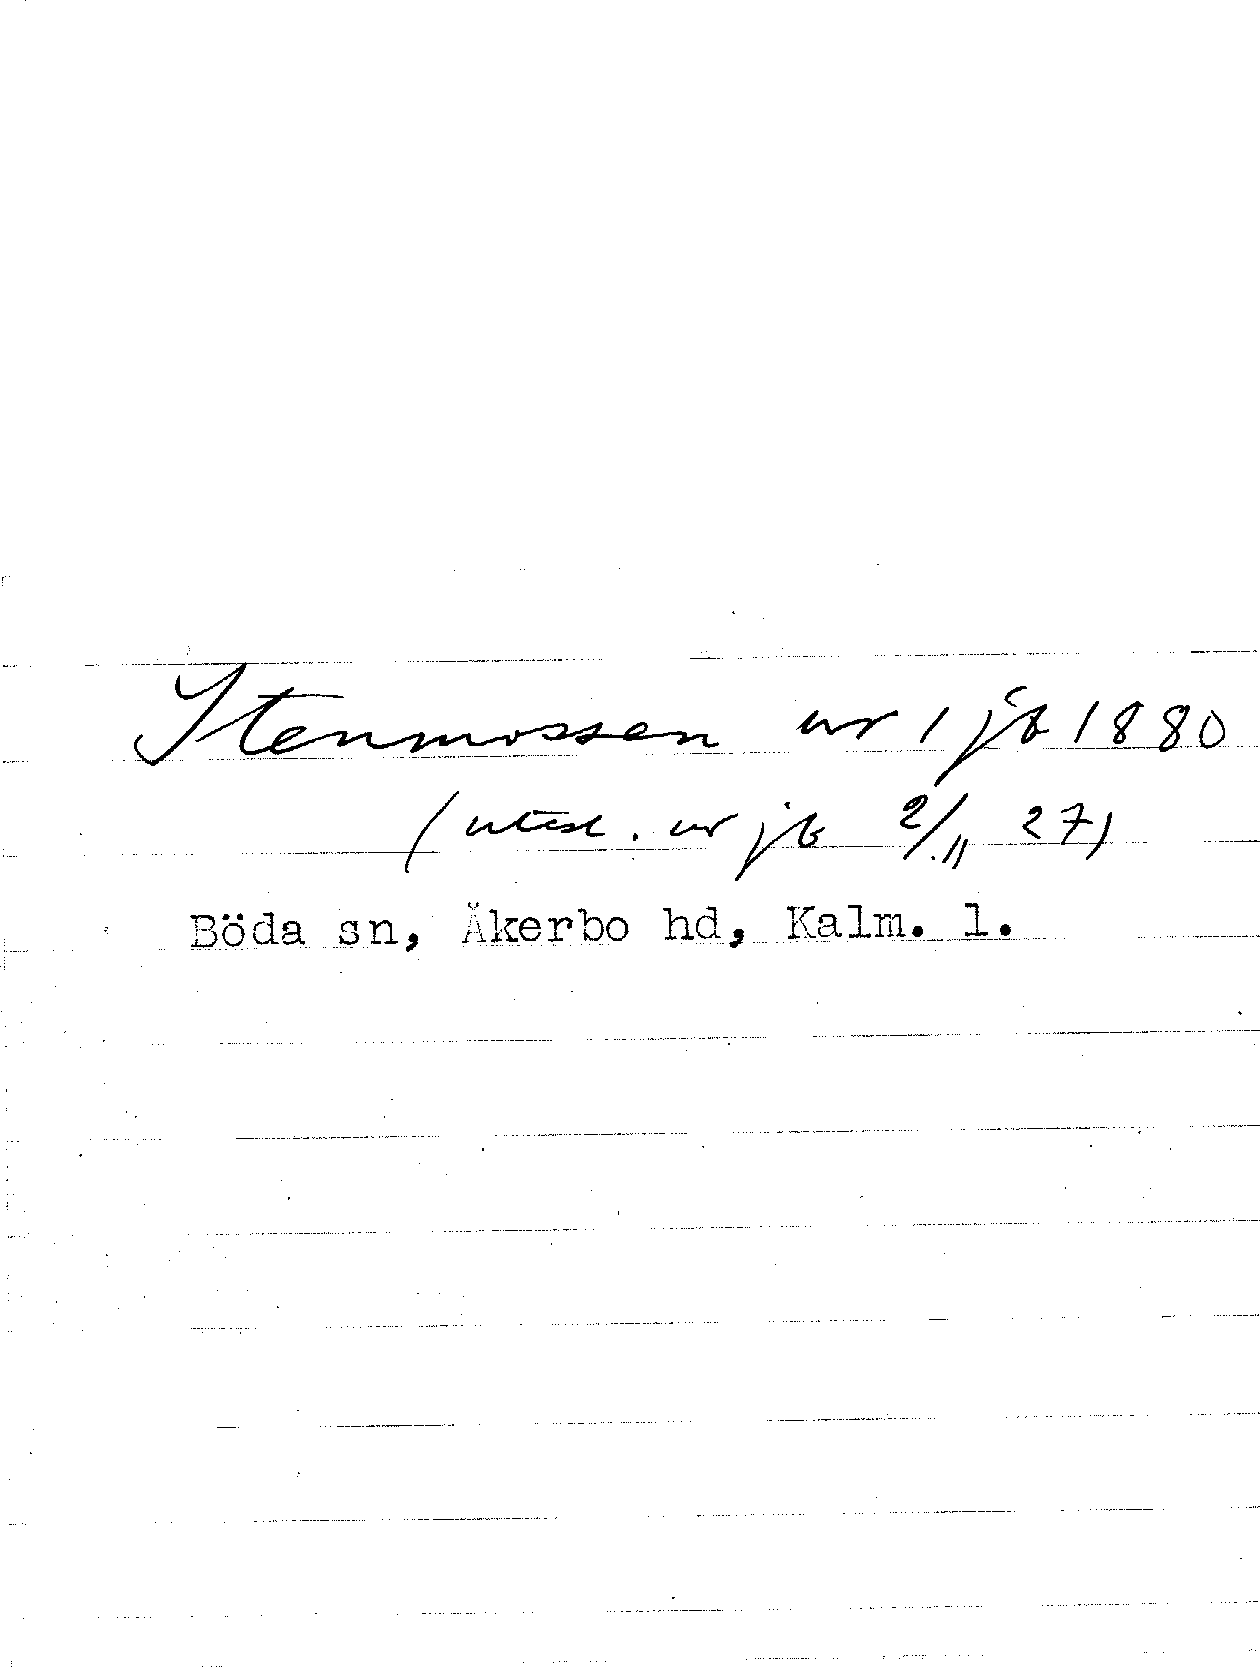 Stenmossen nr 1 jb 1880
(utesl. ur jb 2/11 27)
Böda sn, Åkerbo hd, Kalm. l.